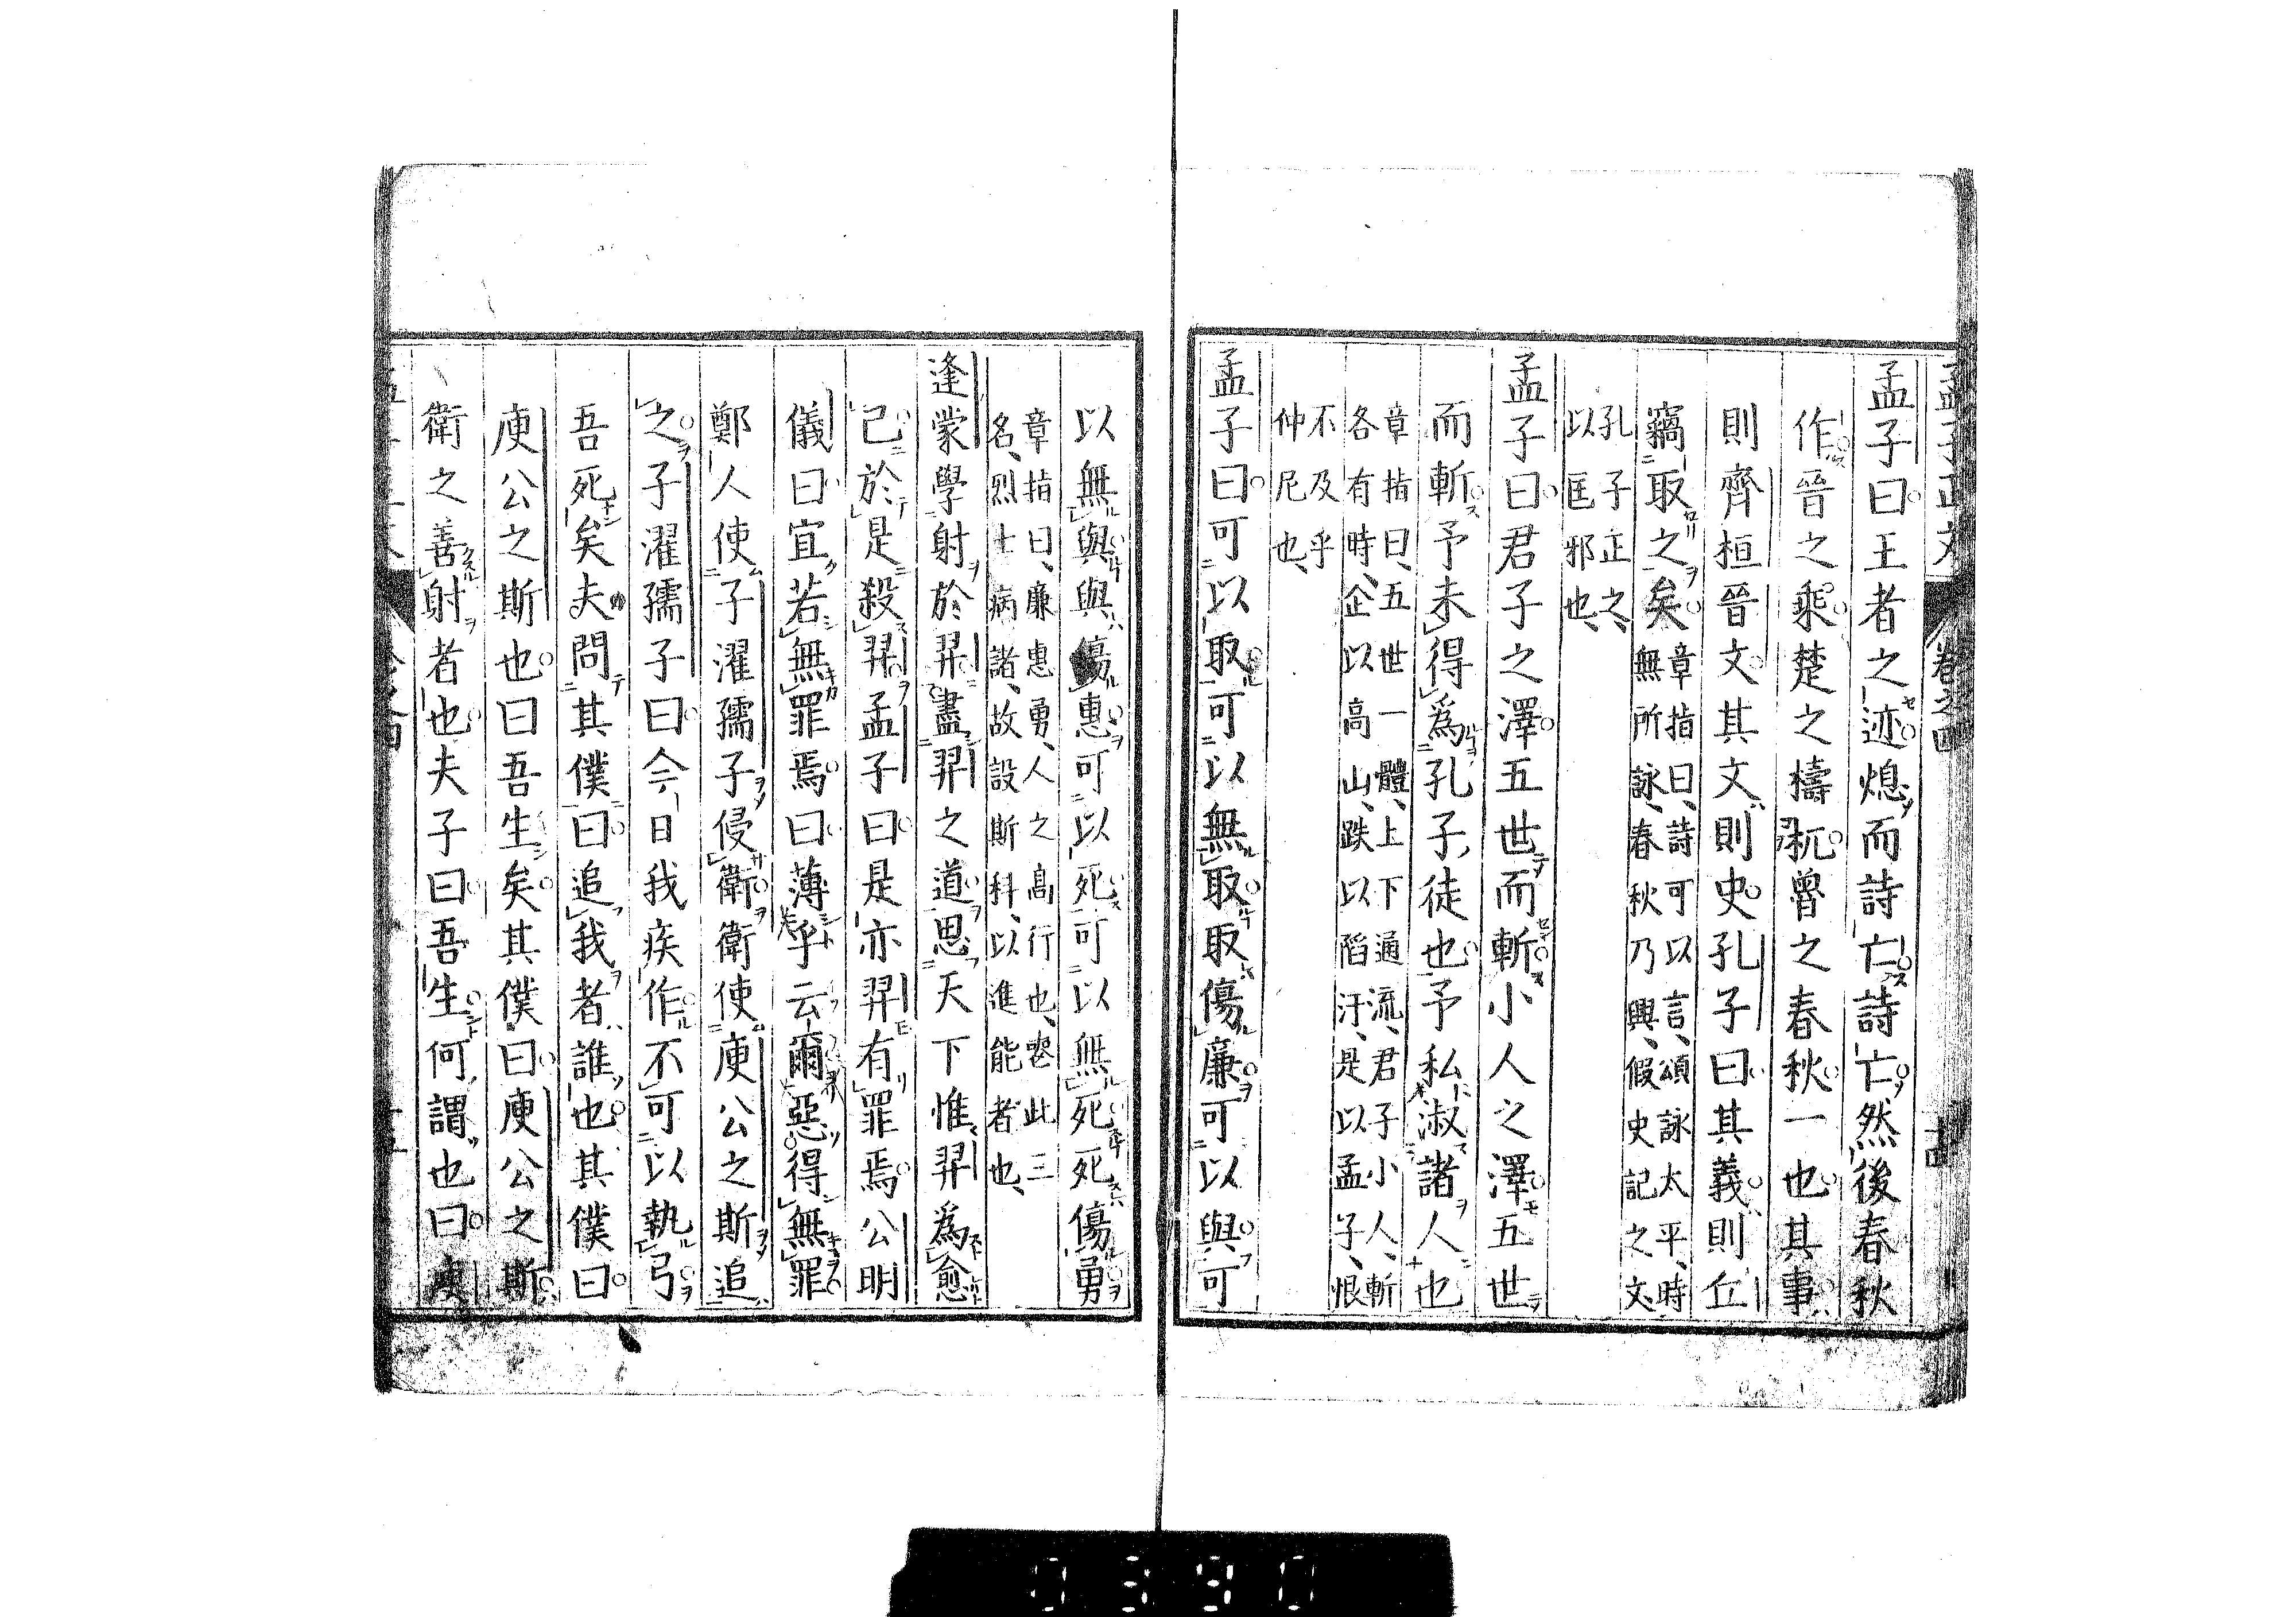 孟子正文 卷之四 十四
孟子曰王者之迹熄而詩亡詩亡然後春秋
作晉之乘楚之檮杌魯之春秋一也其事
則齊桓晉文其文則史孔子曰其義則丘
竊取之矣章指曰、詩可以言、頌詠太平、時
無所詠、春秋乃興、假史記之文、
孔子正之、
以匡邪也、
孟子曰君子之澤五世而斬小人之澤五世
而斬予未得爲孔子徒也予私淑諸人也
章指曰、五世一體、上下通流、君子小人、斬
各有時、企以高山、跌以陷汙、是以孟子、恨
不及乎
仲尼也、
孟子曰可以取可以無取取傷廉可以與可
以無與與傷惠可以死可以無死死傷勇
章指曰、廉惠勇、人之高行也、喪此三
名、烈士病諸、故設斯科、以進能者也、
逢蒙學射於羿盡羿之道思天下惟羿爲愈
己於是殺羿孟子曰是亦羿有罪焉公明
儀曰宜若無罪焉曰薄乎云爾惡得無罪
鄭人使子濯孺子侵衛衛使庾公之斯追
之子濯孺子曰今日我疾作不可以執弓
吾死矣夫問其僕曰追我者誰也其僕曰
庾公之斯也曰吾生矣其僕曰庾公之斯
衛之善射者也夫子曰吾生何謂也曰庾
0390